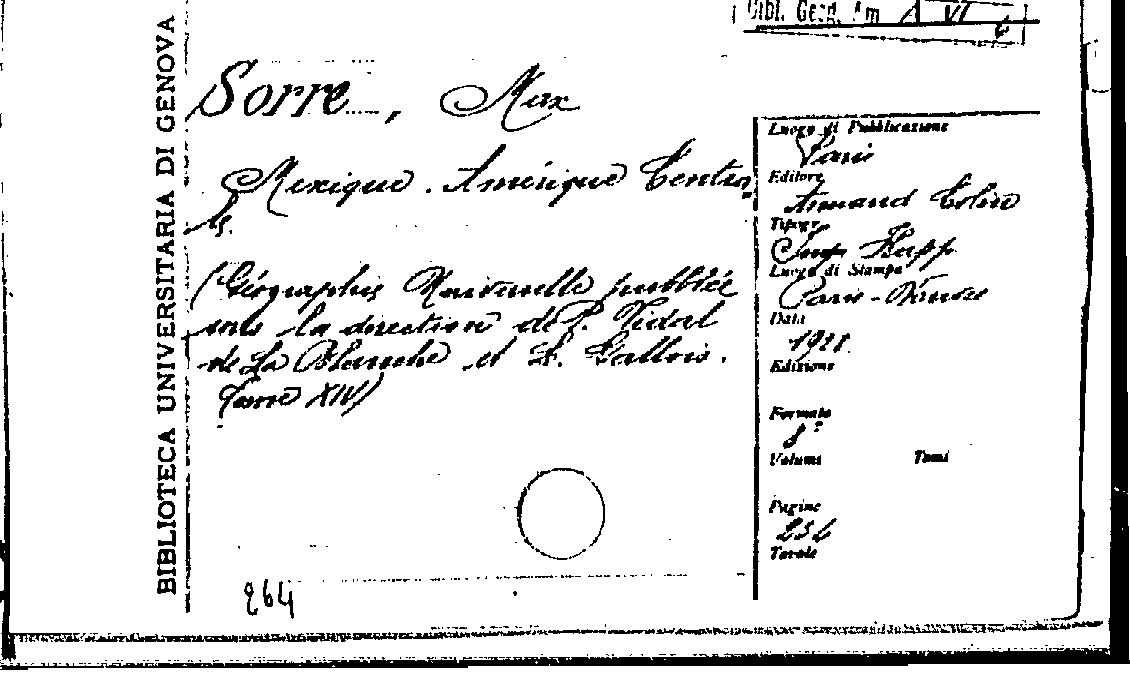 Bibl. Geog. Am A VI
6
BIBLIOTECA UNIVERSITARIA DI GENOVA
Sorre, Max
Mexique. Amérique Centra
le.
(Géographie Universelle publiée
sous la direction de P. Vidal
de La Blache et L. Gallois.
Tome XIV)
264
Luogo di Pubblicazione
Paris
Editore
Armand Colin
Tipogr.
Imp Hepp
Luogo di Stampa
Paris-Vanves
Data
Edizione
Formato
8°
Volumi Tomi
Pagine
Tavole